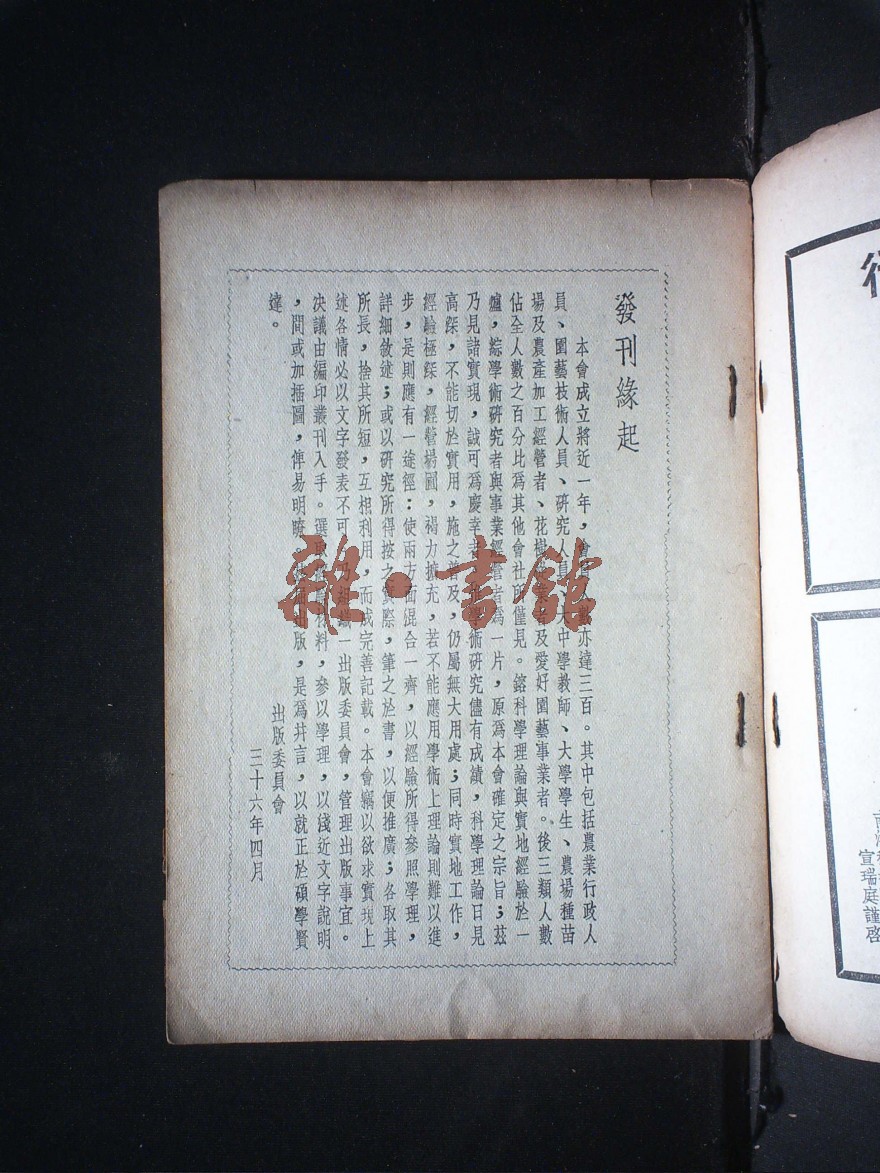 發刊緣起
本會成立將近一年，會員人數亦達三百。其中包括農業行政人
員、園藝技術人員、研究人員、大中學教師、大學學生、農場種苗
場及農產加工經營者、花樹業者及愛好園藝事業者。後三類人數
佔全人數之百分比為其他會社所僅見。鎔科學理論與實地經驗於一
爐，綜學術研究者與事業經營者為一片，原為本會確定之宗旨；茲
乃見諸實現，誠可為慶幸者。學術研究儘有成績，科學理論日見
高深，不能切於實用，施之普及，仍屬無大用處；同時實地工作，
經驗極深，經營場圃，褐力擴充，若不能應用學術上理論則難以進
步，是則應有一途徑：使兩方面混合一齊，以經驗所得參照學理，
詳細敘述；或以研究所得按之實際，筆之於書，以便推廣；各取其
所長，捨其所短，互相利用，而成完善記載。本會竊以欲求實現上
述各情必以文字發表不可，乃組織一出版委員會，管理出版事宜。
決議由編印叢刊入手。選取材料，參以學理，以淺近文字說明
，間或加插圖，俾易明瞭，出版，是為弁言，以就正於碩學賢
達。
出版委員會
三十六年四月
雜·書館
宣瑞庭謹啓